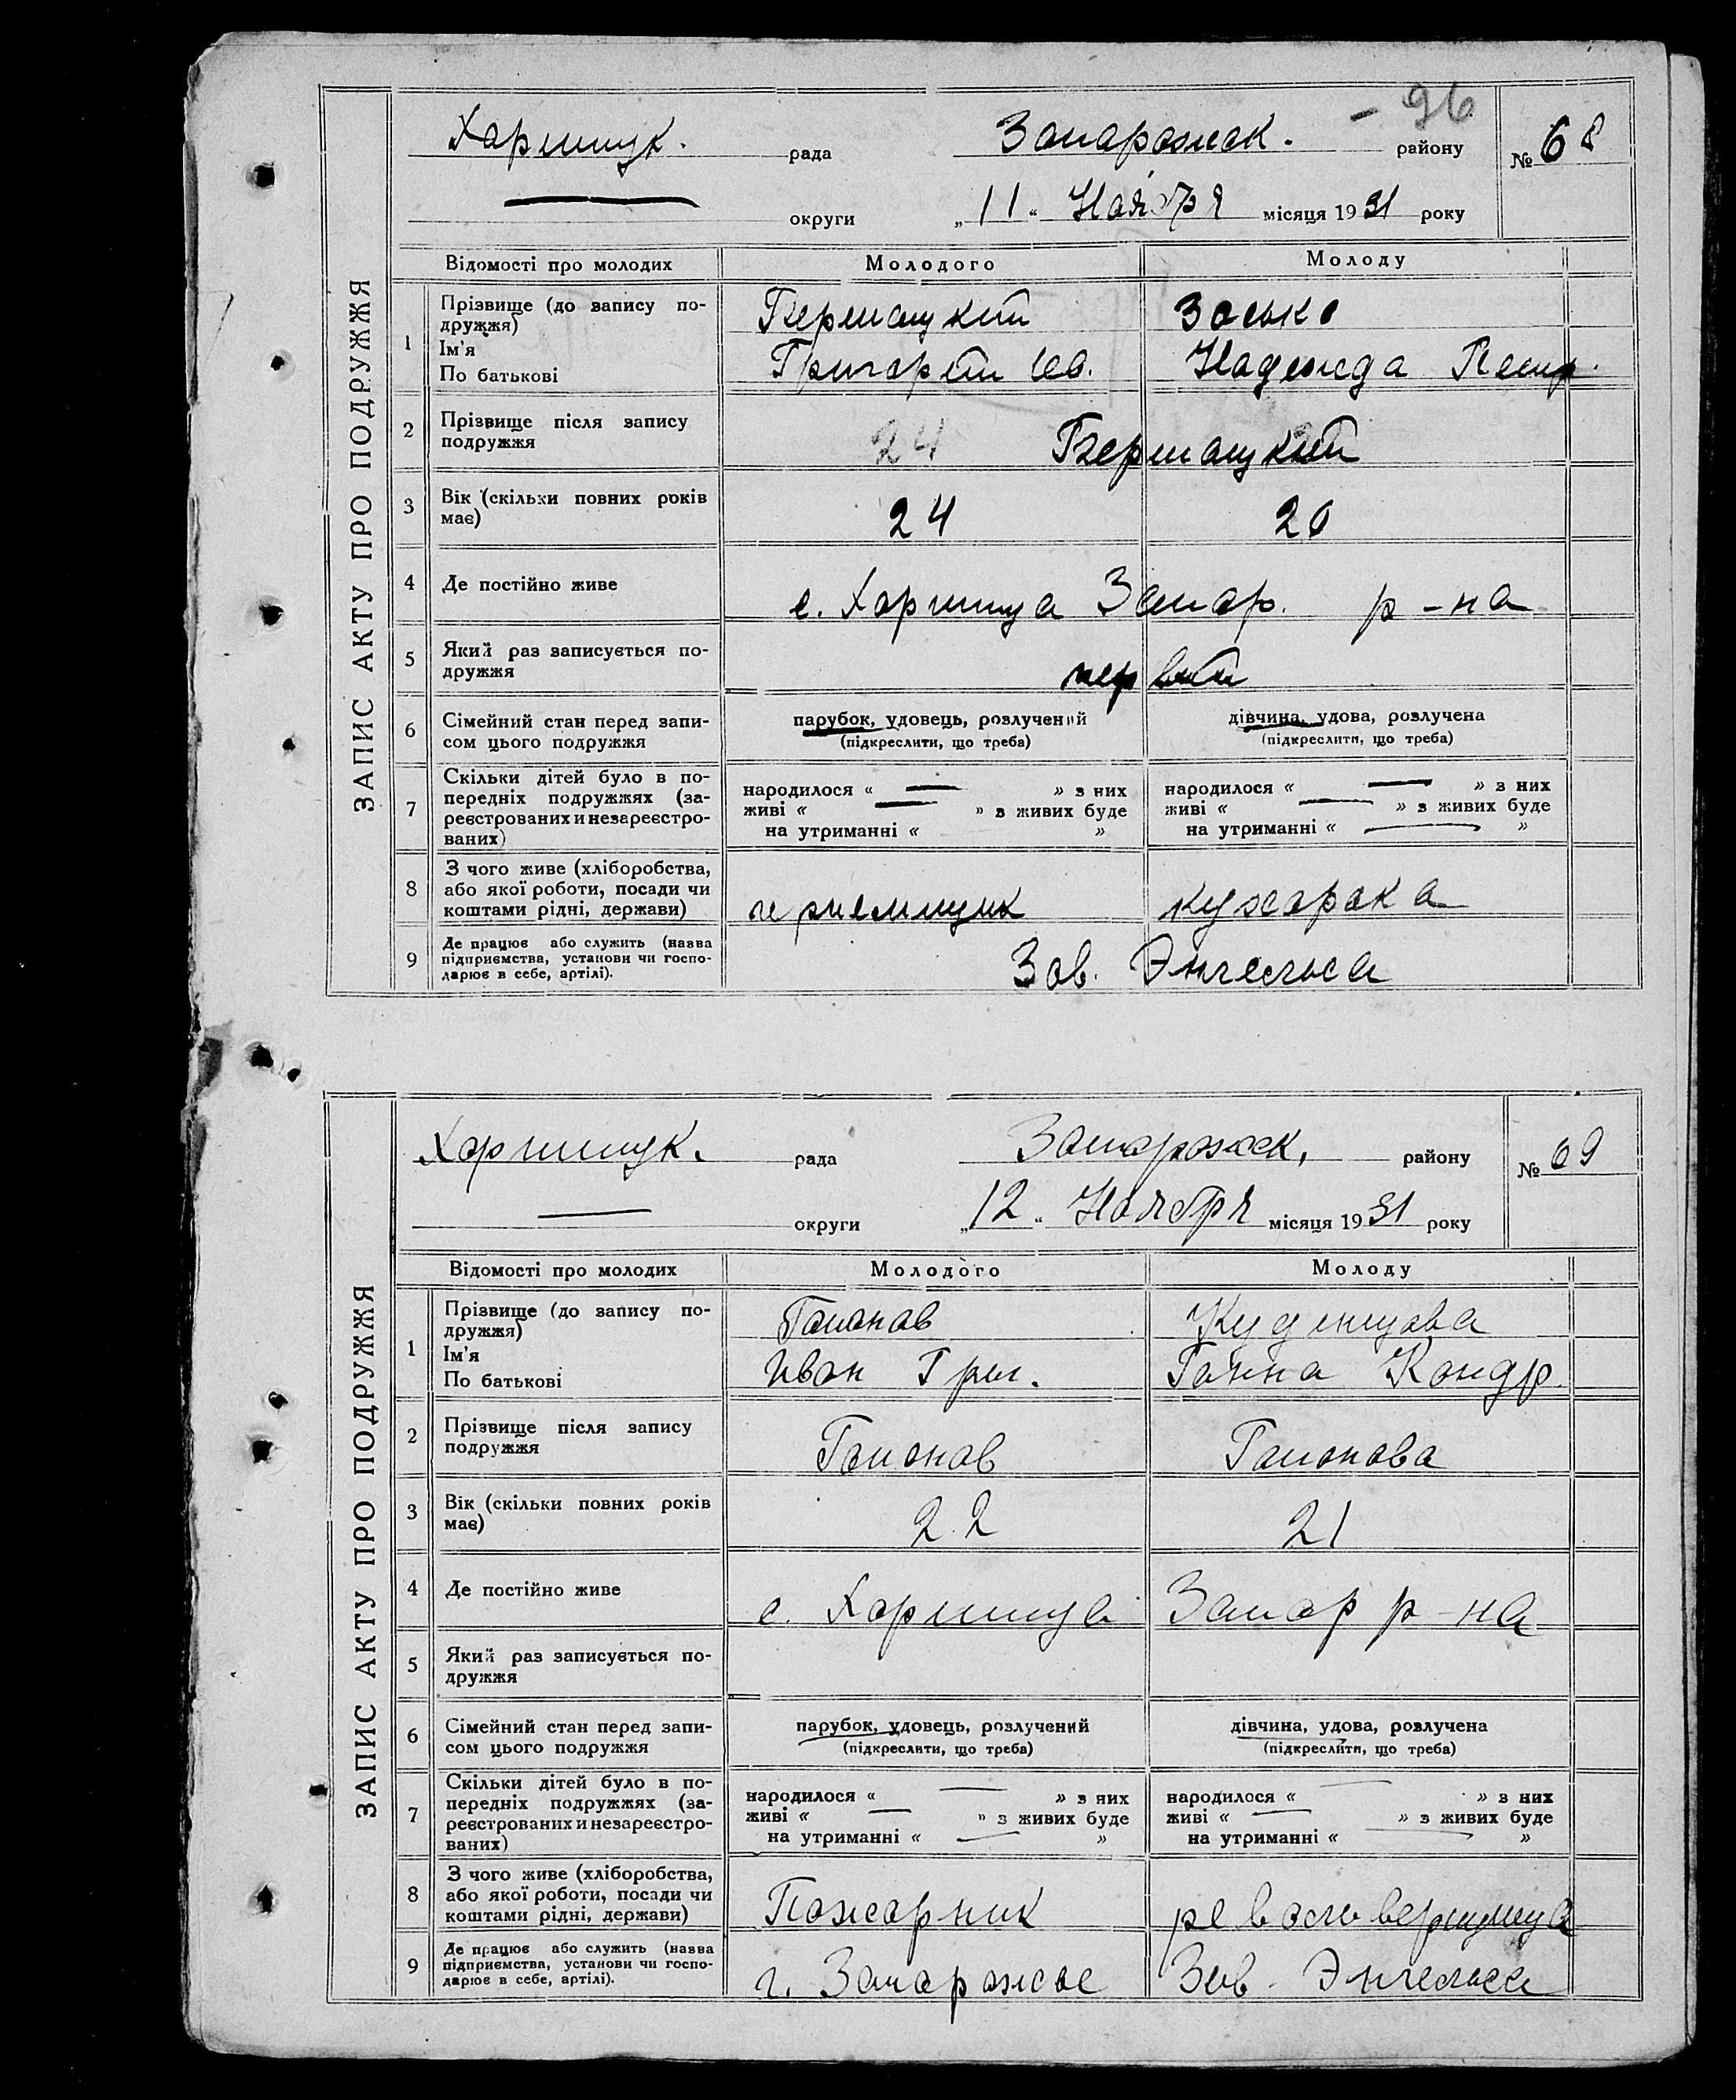 ЗАПИС АКТУ ПРО ПОДРУЖЖЯ
- 96
Хортицк. рада Запорожск. району № 68
округи „ 11 “ Ноября місяця 1931 року
Відомості про молодих Молодого Молоду
1 Прізвище (до запису по-
дружжя)
Ім'я
По батькові
Зосько
Григорий Ив. Надежда Петр.
2 Прізвище після запису
подружжя
24
3 Вік (скільки повних років
має)
24 20
4 Де постійно живе
с. Хортица Запор. р-на
5 Який раз записується по-
дружжя
первый
6 Сімейний стан перед запи-
сом цього подружжя
парубок, удовець, розлучений
(підкреслити, що треба)
дівчина, удова, розлучена
(підкреслити, що треба)
7 Скільки дітей було в по-
передніх подружжях (за-
реєстрованих и незареєстро-
ваних)
народилося « — » з них
живі « — » з живих буде
на утриманні « »
народилося « — » з них
живі « — » з живих буде
на утриманні « — »
8 З чого живе (хліборобства,
або якої роботи, посади чи
коштами рідні, держави)
приемщик кухарка
9 Де працює або служить (назва
підприємства, установи чи госпо-
дарює в себе, артілі).
Зав. Энгельса
ЗАПИС АКТУ ПРО ПОДРУЖЖЯ
Хортицк. рада Запорожск. району № 69
округи „ 12 “ Ноября місяця 1931 року
Відомості про молодих Молодого Молоду
1 Прізвище (до запису по-
дружжя)
Ім'я
По батькові
Гапонов
Иван Григ. Ганна Кондр.
2 Прізвище після запису
подружжя
Гапонов Гапонова
3 Вік (скільки повних років
має)
22 21
4 Де постійно живе
с. Хортица Запор р-на
5 Який раз записується по-
дружжя
6 Сімейний стан перед запи-
сом цього подружжя
парубок, удовець, розлучений
(підкреслити, що треба)
дівчина, удова, розлучена
(підкреслити, що треба)
7 Скільки дітей було в по-
передніх подружжях (за-
реєстрованих и незареєстро-
ваних)
народилося « — » з них
живі « — » з живих буде
на утриманні « — »
народилося « — » з них
живі « — » з живих буде
на утриманні « — »
8 З чого живе (хліборобства,
або якої роботи, посади чи
коштами рідні, держави)
Пожарник револьверщица
9 Де працює або служить (назва
підприємства, установи чи госпо-
дарює в себе, артілі).
г. Запорожье Зав. Энгельса